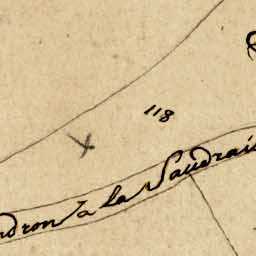 118
ndron a la Saudrai